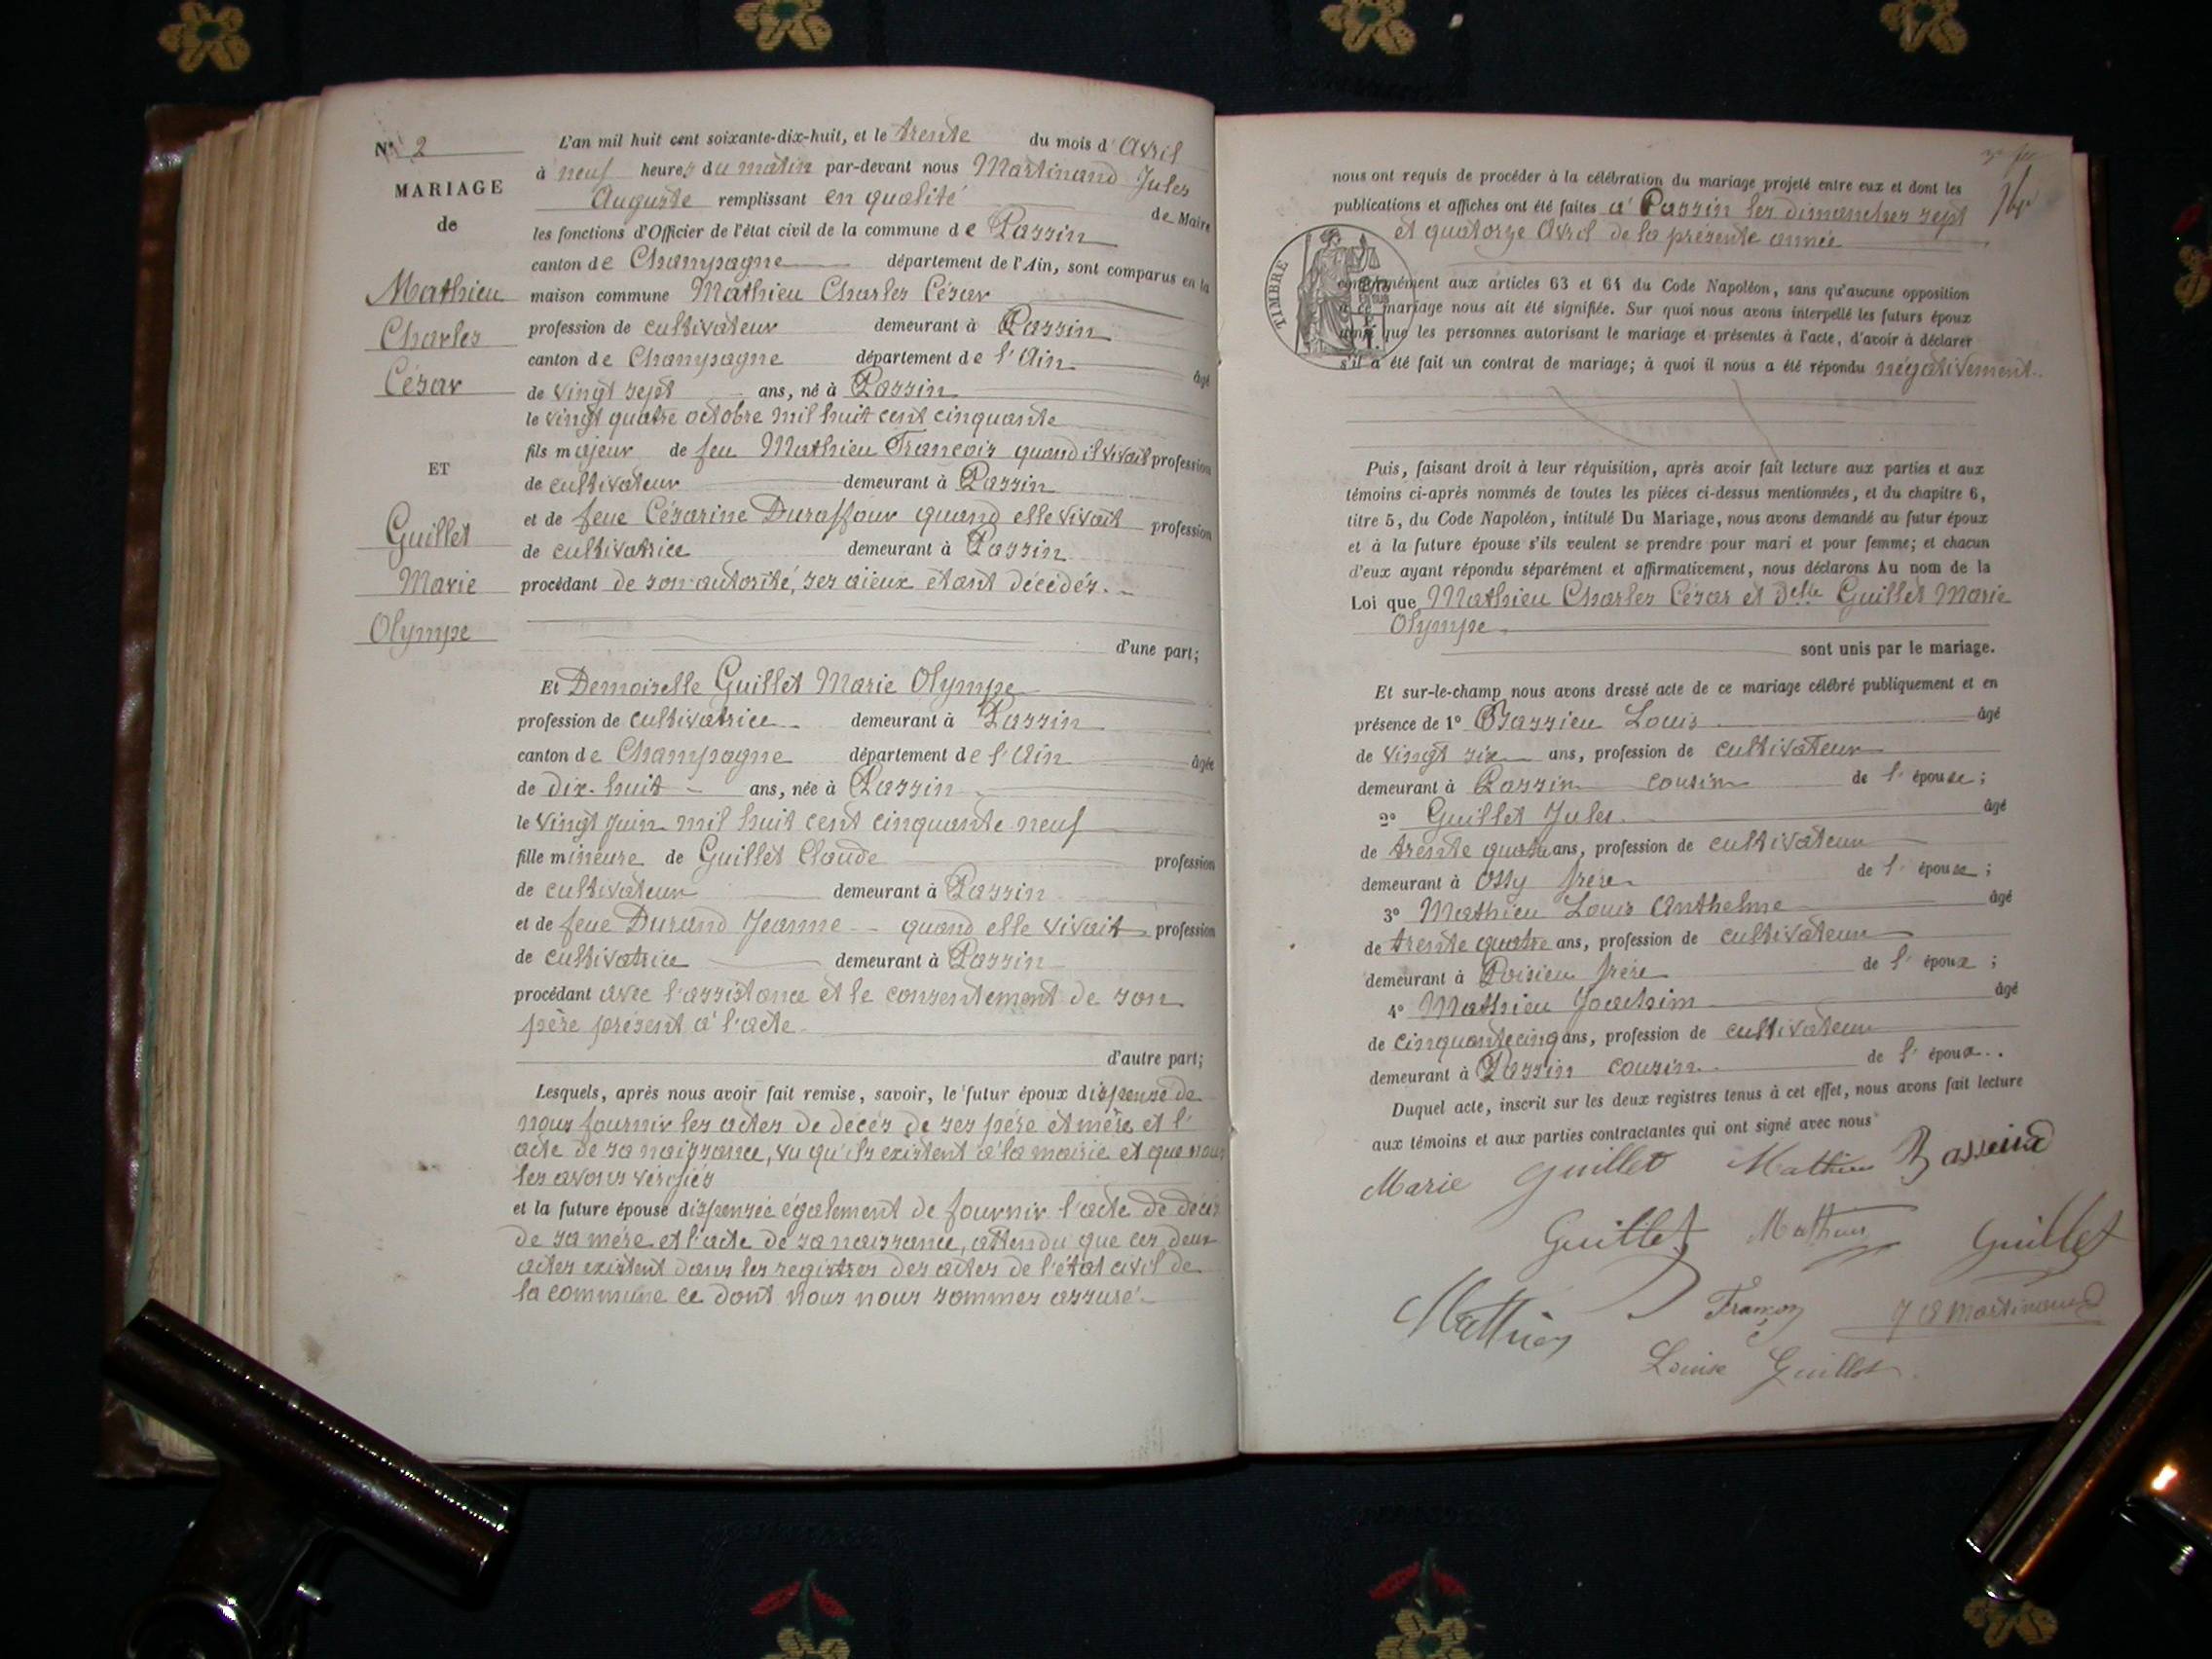 N° 2
MARIAGE
de
Mathieu
Charles
César
ET
Guillet
Marie
Olympe
L'an mil huit cent soixante-dix-huit, et le trente du mois d'Avril
à neuf heures du matin par-devant nous Martinand Jules
Auguste remplissant en qualité de Maire
les fonctions d'Officier de l'état civil de la commune de Passin
canton de Champagne département de l'Ain, sont comparus en la
maison commune Mathieu Charles César
profession de cultivateur demeurant à Passin
canton de Champagne département de l'Ain âgé
de vingt sept ans, né à Passin
le vingt quatre octobre mil huit cent cinquante
fils majeur de feu Mathieu François quand il vivait profession
de cultivateur demeurant à Passin
et de feue Césarine Duraffour quand elle vivait profession
de cultivatrice demeurant à Passin
procédant de son autorité, ses aieux étant décédés.
d'une part;
Et Demoiselle Guillet Marie Olympe
profession de cultivatrice demeurant à Passin
canton de Champagne département de l'Ain âgée
de dix-huit ans, née à Passin
le vingt Juin mil huit cent cinquante neuf
fille mineure de Guillet Claude profession
de cultivateur demeurant à Passin
et de feue Durand Jeanne quand elle vivait profession
de cultivatrice demeurant à Passin
procédant avec l'assistance et le consentement de son
père présent à l'acte
d'autre part;
Lesquels, après nous avoir fait remise, savoir, le futur époux dispensé de
nous fournir les actes de décès de ses père et mère et l'
acte de sa naissance, vu qu'ils existent à la mairie et que nous
les avons vérifiés
et la future épouse dispensée également de fournir l'acte de décès
de sa mère et l'acte de sa naissance, attendu que ces deux
actes existent dans les registres des actes de l'état civil de
la commune ce dont nous nous sommes assuré.
nous ont requis de procéder à la célébration du mariage projeté entre eux et dont les
publications et affiches ont été faites à Passin les dimanches sept
et quatorze Avril de la présente année
TIMBRE
conformément aux articles 63 et 64 du Code Napoléon, sans qu'aucune opposition
à ce mariage nous ait été signifiée. Sur quoi nous avons interpellé les futurs époux
ainsi que les personnes autorisant le mariage et présentes à l'acte, d'avoir à déclarer
s'il a été fait un contrat de mariage; à quoi il nous a été répondu négativement.
Puis, faisant droit à leur réquisition, après avoir fait lecture aux parties et aux
témoins ci-après nommés de toutes les pièces ci-dessus mentionnées, et du chapitre 6,
titre 5, du Code Napoléon, intitulé Du Mariage, nous avons demandé au futur époux
et à la future épouse s'ils veulent se prendre pour mari et pour femme; et chacun
d'eux ayant répondu séparément et affirmativement, nous déclarons Au nom de la
Loi que Mathieu Charles César et Delle Guillet Marie
Olympe
sont unis par le mariage.
Et sur-le-champ nous avons dressé acte de ce mariage célébré publiquement et en
présence de 1° Bassieu Louis âgé
de vingt six ans, profession de cultivateur
demeurant à Passin cousin de l'épouse;
2° Guillet Jules âgé
de trente quatre ans, profession de cultivateur
demeurant à Ossy frère de l'épouse;
3° Mathieu Louis Anthelme âgé
de trente quatre ans, profession de cultivateur
demeurant à Poisieu frère de l'époux;
4° Mathieu Joachim âgé
de cinquante cinq ans, profession de cultivateur
demeurant à Passin cousin de l'époux.
Duquel acte, inscrit sur les deux registres tenus à cet effet, nous avons fait lecture
aux témoins et aux parties contractantes qui ont signé avec nous
Marie Guillet Mathieu Bassieux
Guillet Mathieu Guillet
Mathieu J A Martinand
Louise Guillet